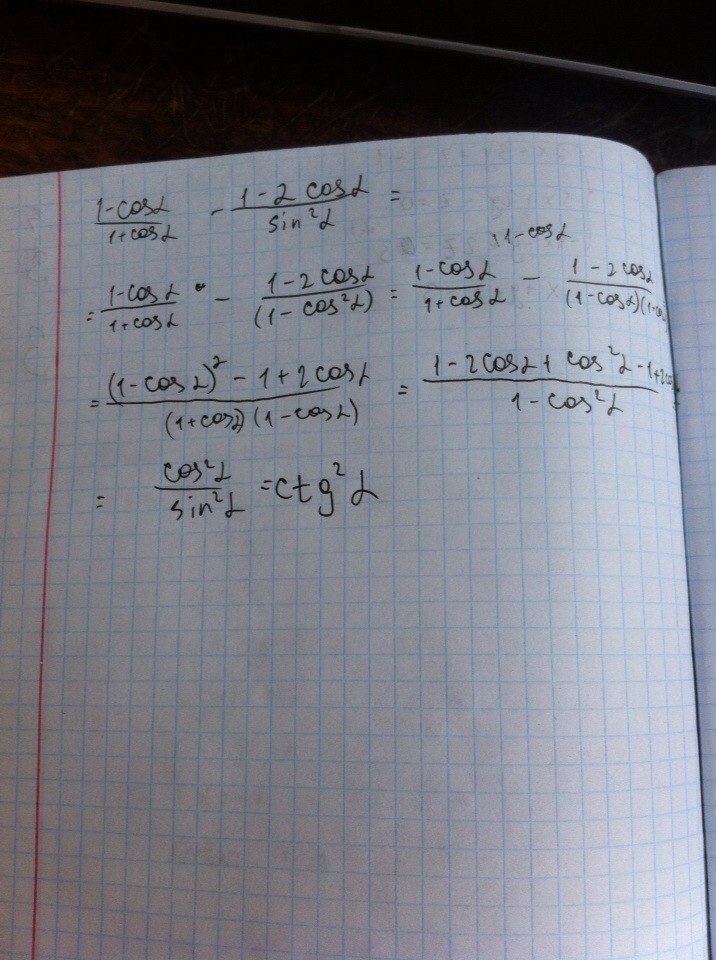 (1-cosα)/(1+cosα) - (1-2cosα)/(sin²α) =
\1-cosα
= (1-cosα)/(1+cosα) - (1-2cosα)/((1-cos²α)) = (1-cosα)/(1+cosα) - (1-2cosα)/((1-cosα)(1+cos
= ((1-cosα)² - 1+2cosα)/((1+cosα)(1-cosα)) = (1-2cosα+cos²α-1+2cos)/(1-cos²α) =
= cos²α/sin²α = ctg²α